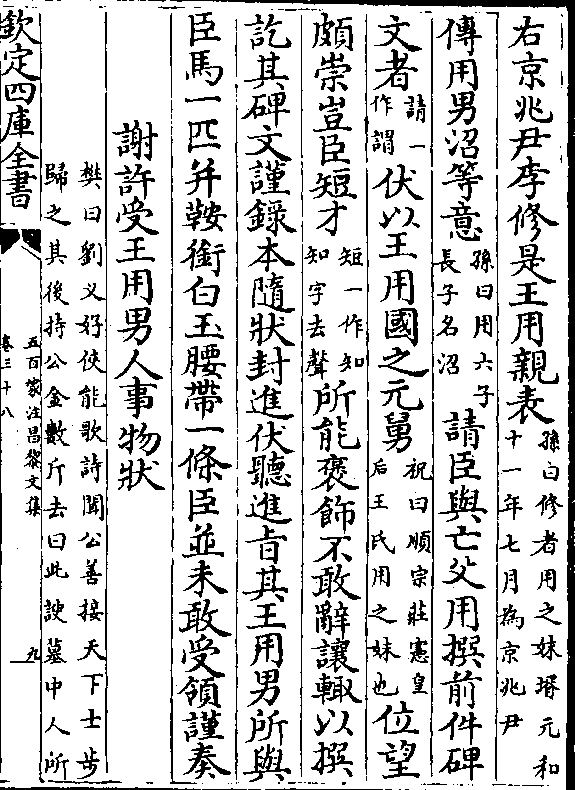 右京兆尹李修是王用親表孫曰修者用之妹壻元和十一年七月為京兆尹
傳用男沼等意孫曰用六子長子名沼請臣與亡父用撰前件碑
文者請一作謂伏以王用國之元舅祝曰順宗莊憲皇后王氏用之妹也位望
頗崇豈臣短才短一作知知字去聲所能褒飾不敢辭讓輙以撰
訖其碑文謹錄本隨狀封進伏聽進旨其王用男所與
臣馬一匹并鞍銜白玉腰帶一條臣並未敢受領謹奏
謝許受王用男人事物狀
樊曰劉义好俠能歌詩聞公善接天下士步
歸之其後持公金數斤去曰此諛墓中人所
欽定四庫全書
五百家注昌黎文集
卷三十八
九